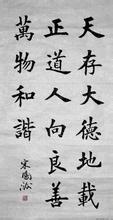 天存大德地載
正道人向良善
萬物和諧